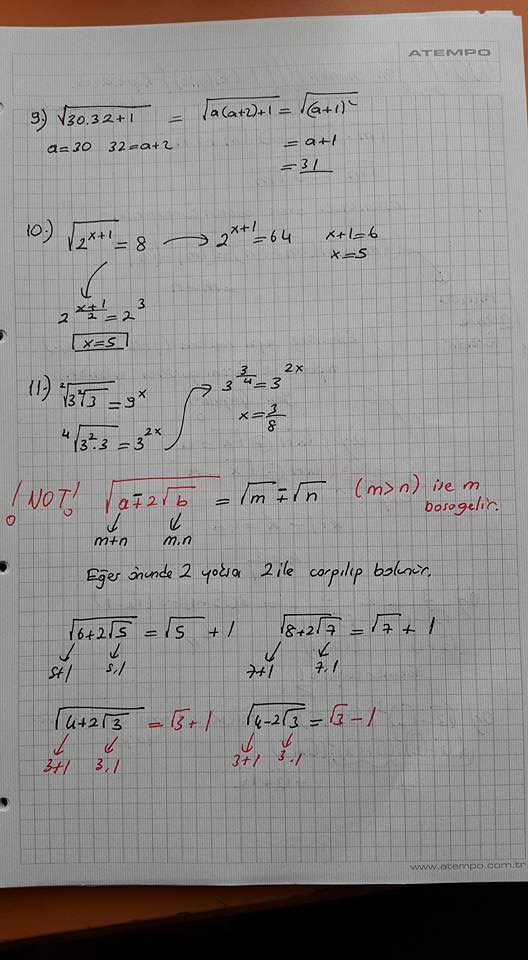 ATEMPO
9.) √30.32+1 = √a(a+2)+1 = √(a+1)²
a=30 32=a+2 = a+1
= 31
10.) √2^(x+1) = 8 → 2^(x+1) = 64 x+1=6
x=5
2^((x+1)/2) = 2³
x=5
11.) ²√(3 ²√3) = 9^x → 3^(3/4) = 3^(2x)
⁴√(3².3) = 3^(2x) x = 3/8
! NOT! √(a∓2√b) = √m ∓ √n (m>n) ise m
başa gelir.
m+n m.n
Eğer önünde 2 yoksa 2 ile çarpılıp bölünür.
√(6+2√5) = √5 + 1 √(8+2√7) = √7 + 1
5+1 5.1 7+1 7.1
√(4+2√3) = √3+1 √(4-2√3) = √3-1
3+1 3.1 3+1 3.1
www.atempo.com.tr